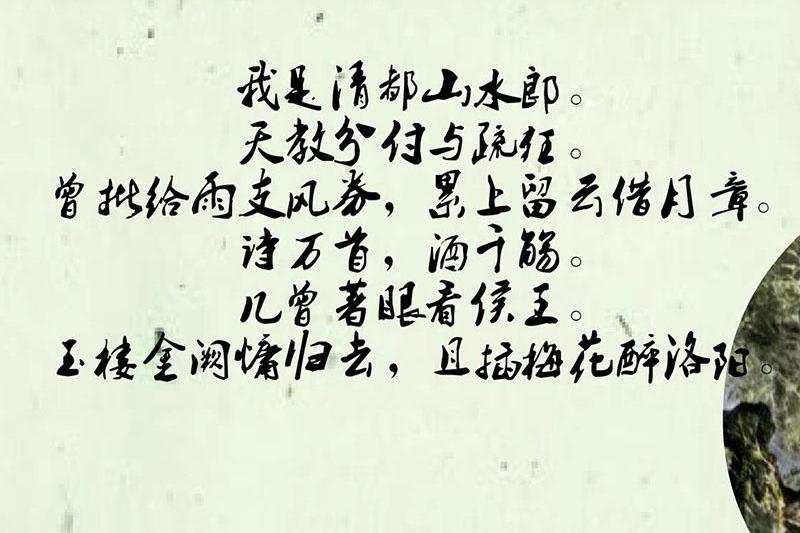 我是清都山水郎。
天教分付与疏狂。
曾批给雨支风券，累上留云借月章。
诗万首，酒千觞。
几曾著眼看侯王。
玉楼金阙慵归去，且插梅花醉洛阳。